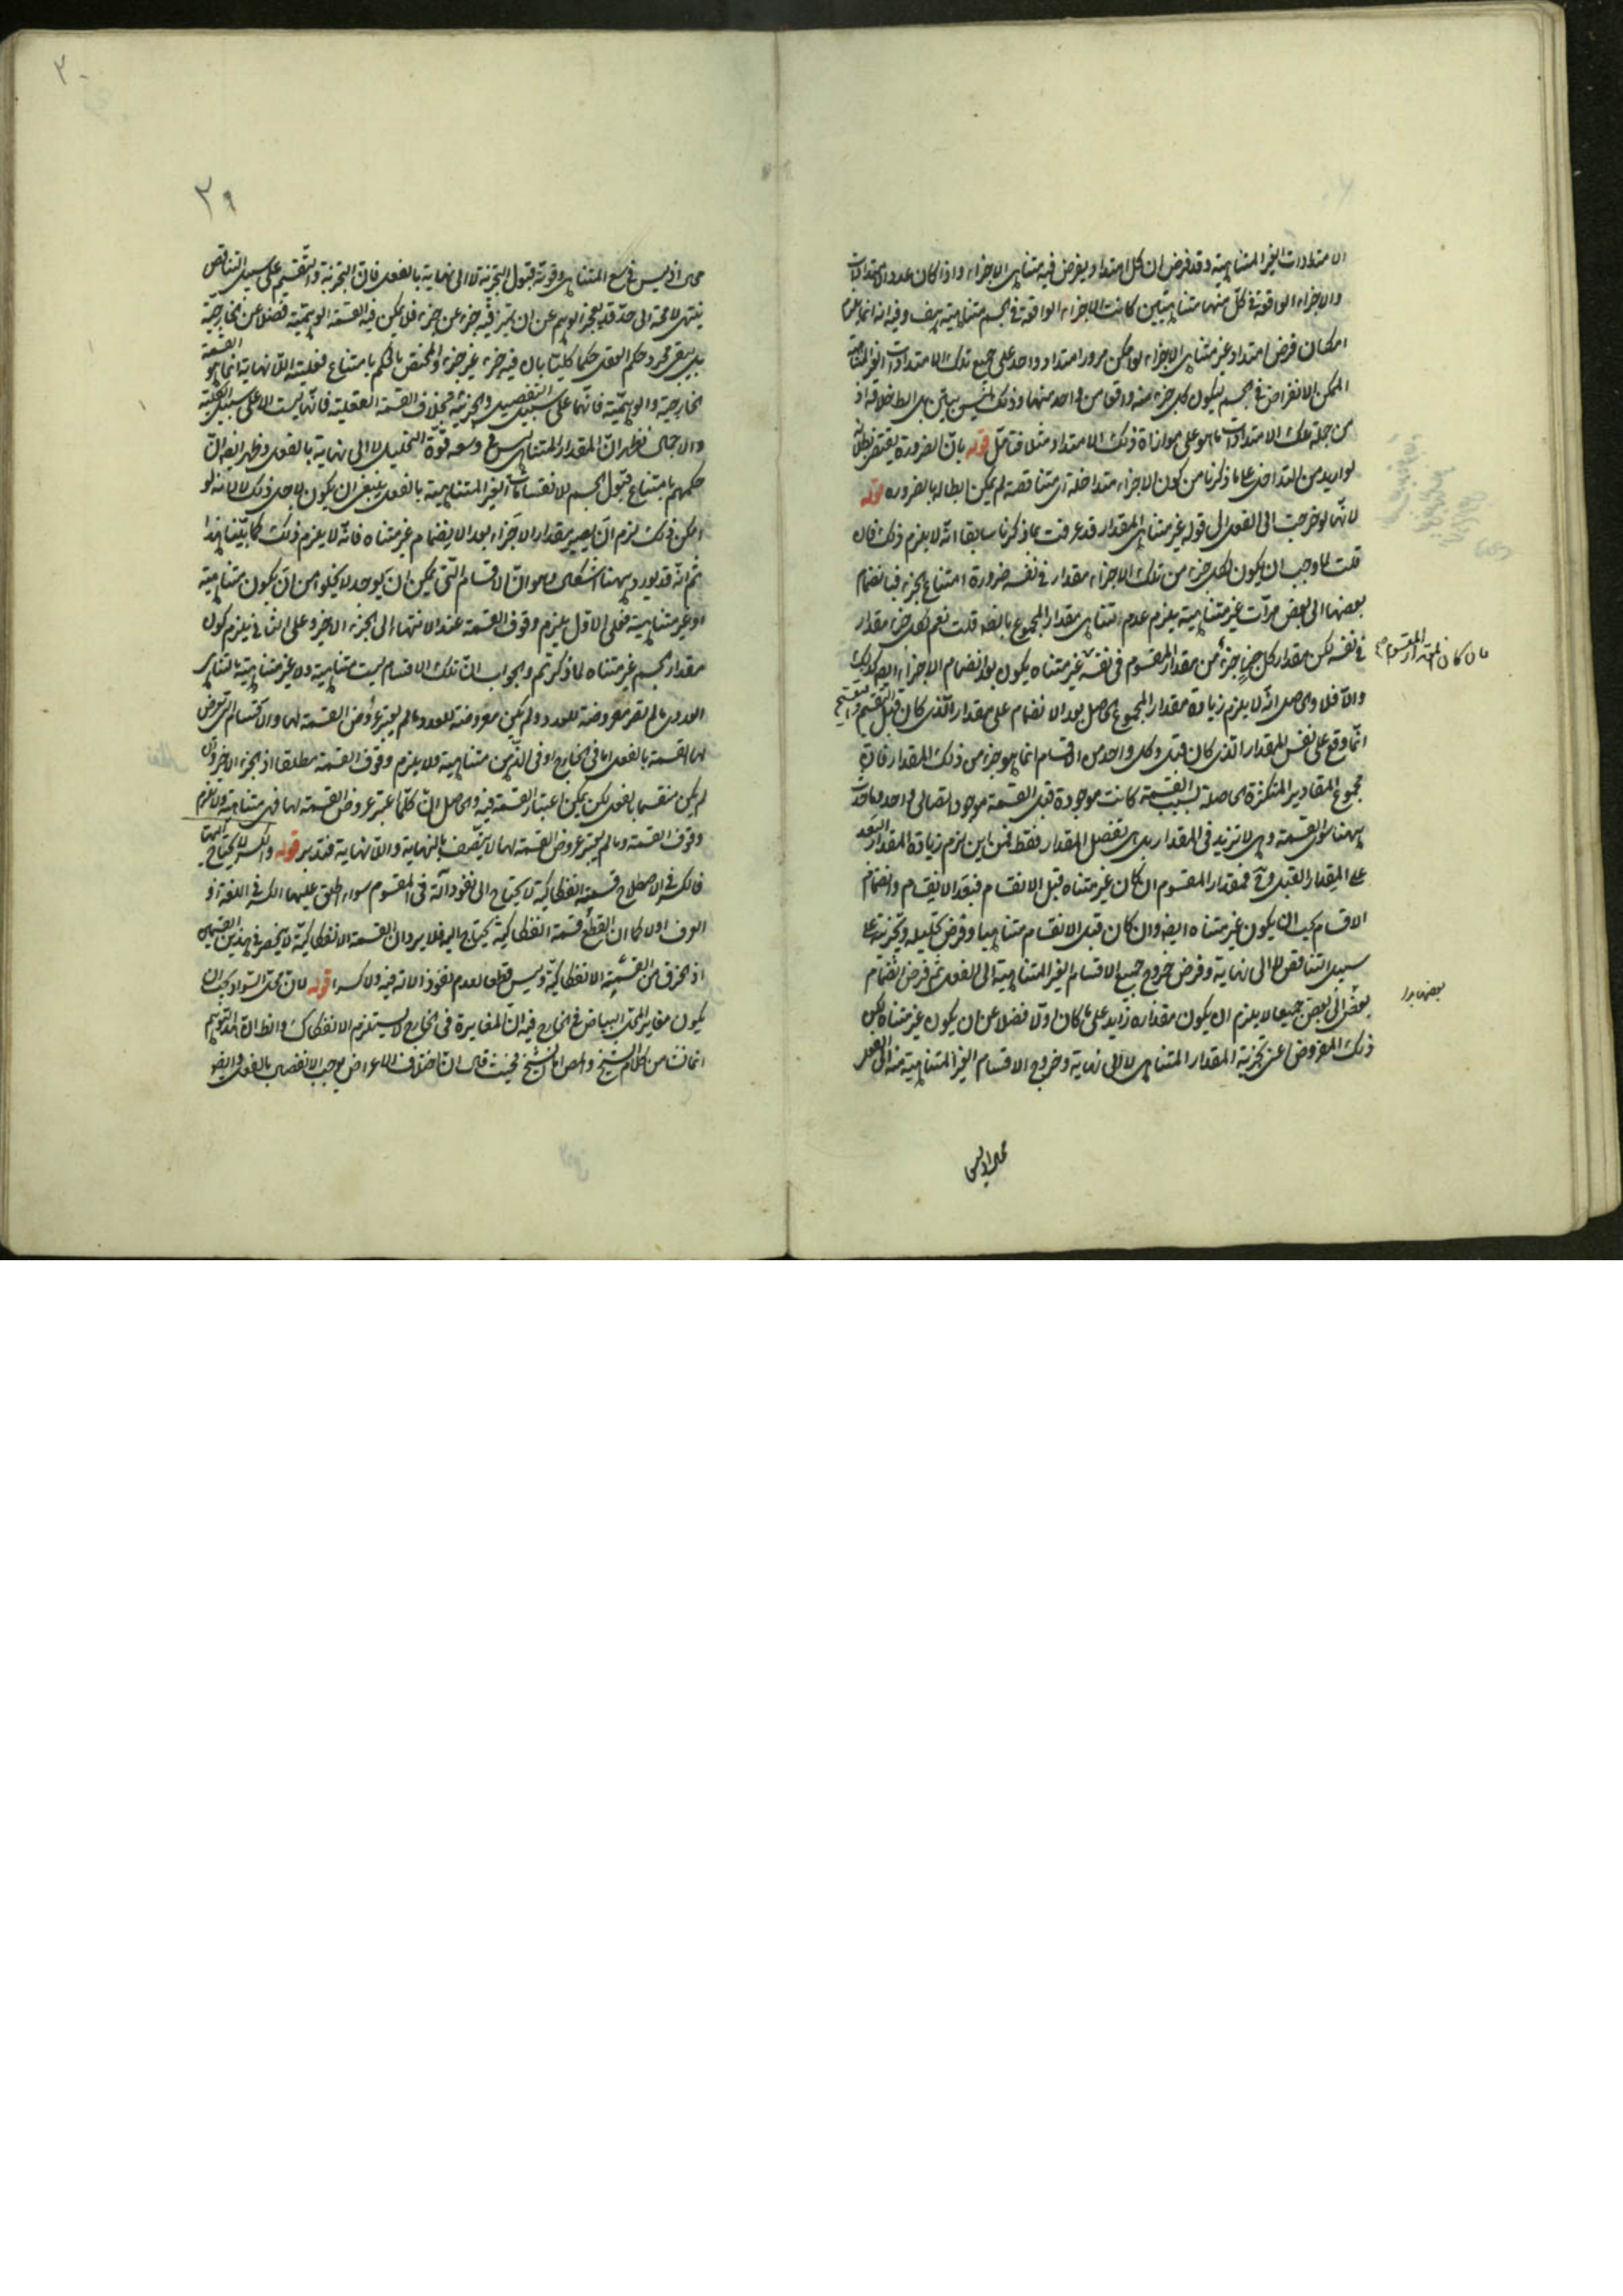 الامتدادات الغير المتناهية وقد فرض ان كل امتداد يفرض فيه متناهى الاجزاء واذا كان عدد الامتدادات
والاجزاء الواقعة فى كل منهما متناهيتين كانت الاجزاء الواقعة فى الجسم متناهية هف وفيه انه انما يلزم
امكان فرض امتداد غير متناهى الاجزاء لو امكن مرور امتداد واحد على جميع تلك الامتدادات الغير المتناهية
الممكن الانفراض فى الجسم ليكون كل جزء منه واقعا من واحد منها وذلك ليس ببين بل الظ خلافه اذ
من جملة تلك الامتدادات ما هو على موازاة ذلك الامتداد مثلا فتامل قوله بان الضرورة يقتضى بطلانه
لو اريد من التداخل ما ذكرنا من كون الاجزاء متداخلة اى متناقصة لم يمكن ابطاله بالضرورة قوله
لانها لو خرجت الى الفعل الى قوله غير متناهى المقدار قد عرفت بما ذكرنا سابقا انه لا يلزم ذلك فان
قلت لما وجب ان يكون لكل جزء من تلك الاجزاء مقدار فى نفسه ضرورة امتناع الجزء فبانضمام
بعضها الى بعض مرات غير متناهية يلزم عدم تناهى مقدار المجموع بالضه قلت نعم لكل جزء مقدار
فى نفسه لكن مقدار كل جزء جزء من مقدار المقسوم فى نفسه غير متناه يكون بعد انضمام الاجزاء ايضه كذلك
فان كان المقدار المقسوم
والا فلا والحاصل انه لا يلزم زيادة مقدار المجموع الحاصل بعد الانضمام على مقدار الذى كان قبل التقسيم والتقسيم
انما وقع على نفس المقدار الذى كان قبل وكل واحد من الاقسام انما هو جزء من ذلك المقدار فان
مجموع المقادير المتكثرة الحاصلة بسبب القسمة كانت موجودة قبل القسمة موجود اتصالى واحد وما حدث
ههنا سوى القسمة وهى لا تزيد فى المقدار بل تفصل المقدار فقط فمن اين لزم زيادة المقدار البعد
على المقدار القبل وح فمقدار المقسوم ان كان غير متناه قبل الانقسام فبعد الانقسام وانضمام
الاقسام يجب ان يكون غير متناه ايضه وان كان قبل الانقسام متناهيا وفرض تحليله وتجزيته على
سبيل التناقص لا الى نهاية وفرض خروج جميع الاقسام الغير المتناهية الى الفعل ثم فرض انضمام
بعض الى بعض جميعا لا يلزم ان يكون مقداره زايد على ما كان اولا فضلا عن ان يكون غير متناه لكن
ذلك المفروض اعنى تجزية المقدار المتناهى لا الى نهاية وخروج الاقسام الغير المتناهية منه الى الفعل
محال اذ ليس
٣٩
محال اذ ليس فى وسع المتناهى وقوته قبول التجزية لا الى نهاية بالفعل فان التجزية والتقسيم على سبيل التناقص
ينتهى لا محة الى حد قد يعجز الوهم عن ان يتميز فيه جزء عن جزء فلا يمكن فيه القسمة الوهمية فضلا عن الخارجية
بل يبقى مجرد حكم العقل حكما كليا بان فيه جزء غير جزء والمختص بالحكم بامتناع فعلية اللا نهاية انما هو القسمة
الخارجية والوهمية فانهما على سبيل التفصيل والجزئية بخلاف القسمة العقلية فانها ليست الا على سبيل الكلية
والاجمال فظهر ان المقدار المتناهى ليس فى وسعه قوة التحليل لا الى نهاية بالفعل وظهر ايضه ان
حكمهم بامتناع قبول الجسم للانقسامات الغير المتناهية بالفعل ينبغى ان يكون لاجل ذلك لا لانه لو
امكن ذلك لزم ان يصير مقدار الاجزاء بعد الانضمام غير متناه فانه لا يلزم ذلك كما بينا هذا
ثم انه قد يورد ههنا اشكال وهو ان الاقسام التى يمكن ان يوجد لا يخلو من ان يكون متناهية
او غير متناهية فعلى الاول يلزم وقوف القسمة عند الانتهاء الى الجزء الاخير وعلى الثانى يلزم كون
مقدار الجسم غير متناه لما ذكرتم والجواب ان تلك الاقسام ليست متناهية ولا غير متناهية بالتناهى
العددى ما لم تصر معروضة للعدد ولم يكن معروضة للعدد ما لم يعتبر عروض القسمة لها والاقسام التى تعرض
لها القسمة بالفعل اما فى الخارج او فى الذهن متناهية ولا يلزم وقوف القسمة مطلقا اذ الجزء الاخير وان
لم يكن منقسما بالفعل لكن يمكن اعتبار القسمة فيه والحاصل ان كلما اعتبر عروض القسمة لها فهى متناهية ولا يلزم
وقوف القسمة وما لم يعتبر عروض القسمة لها لا يتصف بالنهاية واللا نهاية فتدبر قوله والكسر لا يحتاج اليها
فالكسر فى الاصطلاح قسمة انفكاكية لا يحتاج الى نفوذ آلة فى المقسوم سواء اطلق عليها الكسر فى اللغة او
العرف او لا كما ان القطع قسمة انفكاكية يحتاج اليه فلا يرد ان القسمة الانفكاكية لا ينحصر فى هذين القسمين
اذ الخرق من القسمة الانفكاكية وليس قطعا لعدم نفوذ الالة فيه ولا كسرا قوله لان محل السواد يجب ان
يكون مغايرا لمحل البياض فى الخارج فيه ان المغايرة فى الخارج لا يستلزم الانفكاك والظ ان هذا التوهم
انما نشا من كلام الشيخ والمص اما الشيخ فحيث قال ان اختلاف الاعراض يوجب الانفصال بالفعل وايضه